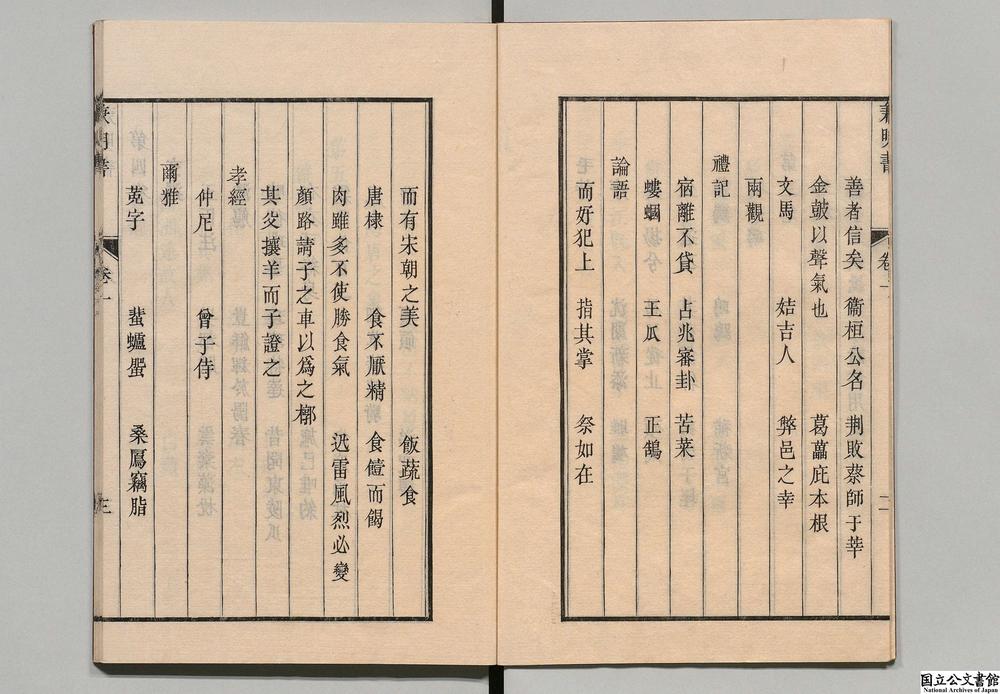 兼明書
卷一
二
善者信矣 衞桓公名 荆敗蔡師于莘
金皷以聲氣也 葛藟庇本根
文馬 姞吉人 弊邑之幸
兩觀
禮記
宿離不貸 占兆審卦 苦菜
螻蟈 王瓜 正鵠
論語
而好犯上 指其掌 祭如在
而有宋朝之美 飯蔬食
唐棣 食不厭精 食饐而餲
肉雖多不使勝食氣 迅雷風烈必變
顏路請子之車以爲之槨
其父攘羊而子證之
孝經
仲尼 曾子侍
爾雅
蒐字 蜚蠦蜰 桑鳸竊脂
兼明書
卷一
三
国立公文書館
National Archives of Japan